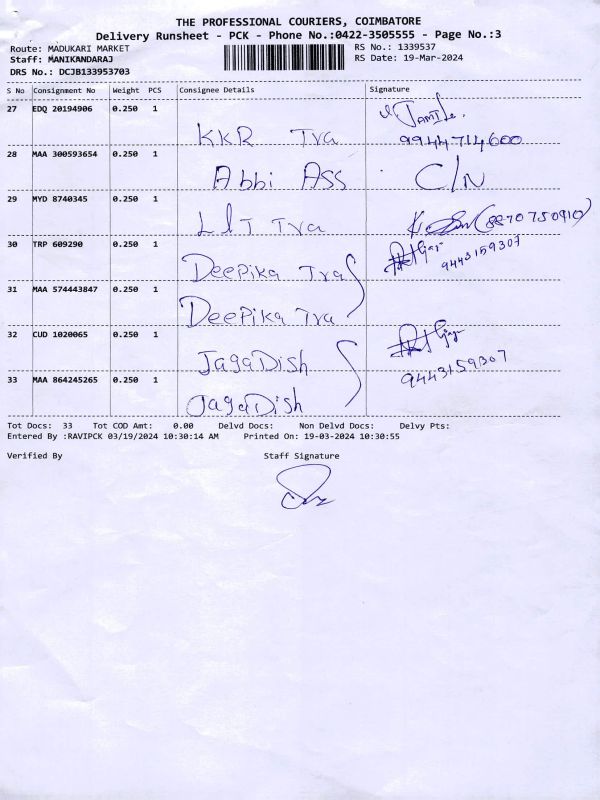 THE PROFESSIONAL COURIERS, COIMBATORE
Delivery Runsheet - PCK - Phone No.:0422-3505555 - Page No.:3
Route: MADUKARI MARKET RS No.: 1339537
Staff: MANIKANDARAJ RS Date: 19-Mar-2024
DRS No.: DCJB133953703
S No Consignment No Weight PCS Consignee Details Signature
27 EDQ 20194906 0.250 1
KKR Tra 9944714600
28 MAA 300593654 0.250 1
Abbi Ass C/N
29 MYD 8740345 0.250 1
LIT Tra (8870750910)
30 TRP 609290 0.250 1
Deepika Tra 9443159307
31 MAA 574443847 0.250 1
Deepika Tra
32 CUD 1020065 0.250 1
JagaDish 9443159307
33 MAA 864245265 0.250 1
JagaDish
Tot Docs: 33 Tot COD Amt: 0.00 Delvd Docs: Non Delvd Docs: Delvy Pts:
Entered By :RAVIPCK 03/19/2024 10:30:14 AM Printed On: 19-03-2024 10:30:55
Verified By Staff Signature